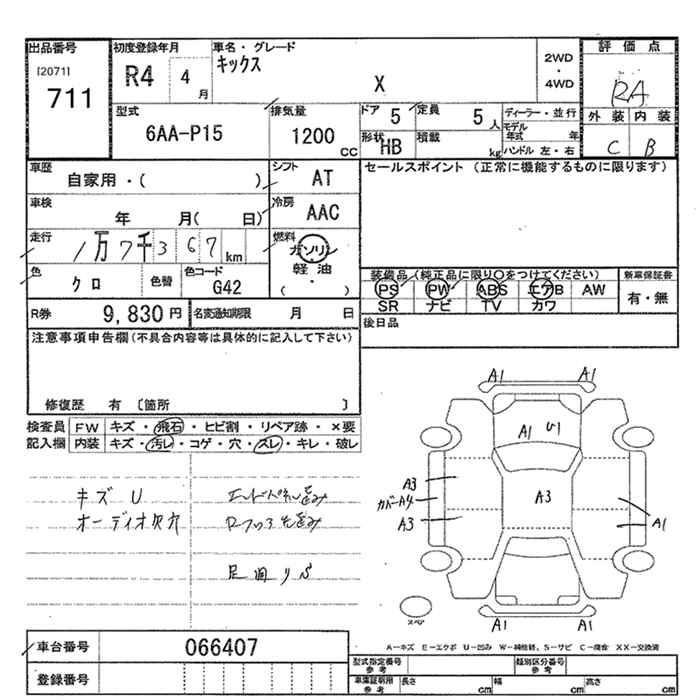 出品番号 初度登録年月 車名・グレード 2WD・4WD 評価点
[2071] R4 4月 キックス X RA
711
型式 排気量 ドア 5 定員 5人 ディーラー・並行 外装 内装
6AA-P15 1200cc 形状 HB 積載 kg モデル年式 年 C B
ハンドル 左・右
車歴 シフト セールスポイント (正常に機能するものに限ります)
自家用・( ) AT
車検 年 月( 日) 冷房 AAC
走行 1万7千367km 燃料 ガソリン
軽油
・
( )
色 クロ 色替 色コード G42
装備品(純正品に限り○をつけてください) 新車保証書
PS PW ABS エアB AW 有・無
SR ナビ TV カワ
R券 9,830円 名変通知期限 月 日 後日品
注意事項申告欄(不具合内容等は具体的に記入して下さい)
修復歴 有 〔箇所 〕
検査員 FW キズ・飛石・ヒビ割・リペア跡・×要
記入欄 内装 キズ・汚レ・コゲ・穴・スレ・キレ・破レ
キズ U エンドパネル歪み
オーディオ欠穴
足回りS
A1 A1
A1 U1
A3 A3
カバーA4
A3 A1
A1 A1
スペア
A-キズ E-エクボ U-凹み W-補修跡、S-サビ C-腐食 XX-交換済
車台番号 066407
登録番号
型式指定番号 参考 類別区分番号 参考
車庫証明用 参考 長さ cm 幅 cm 高さ cm